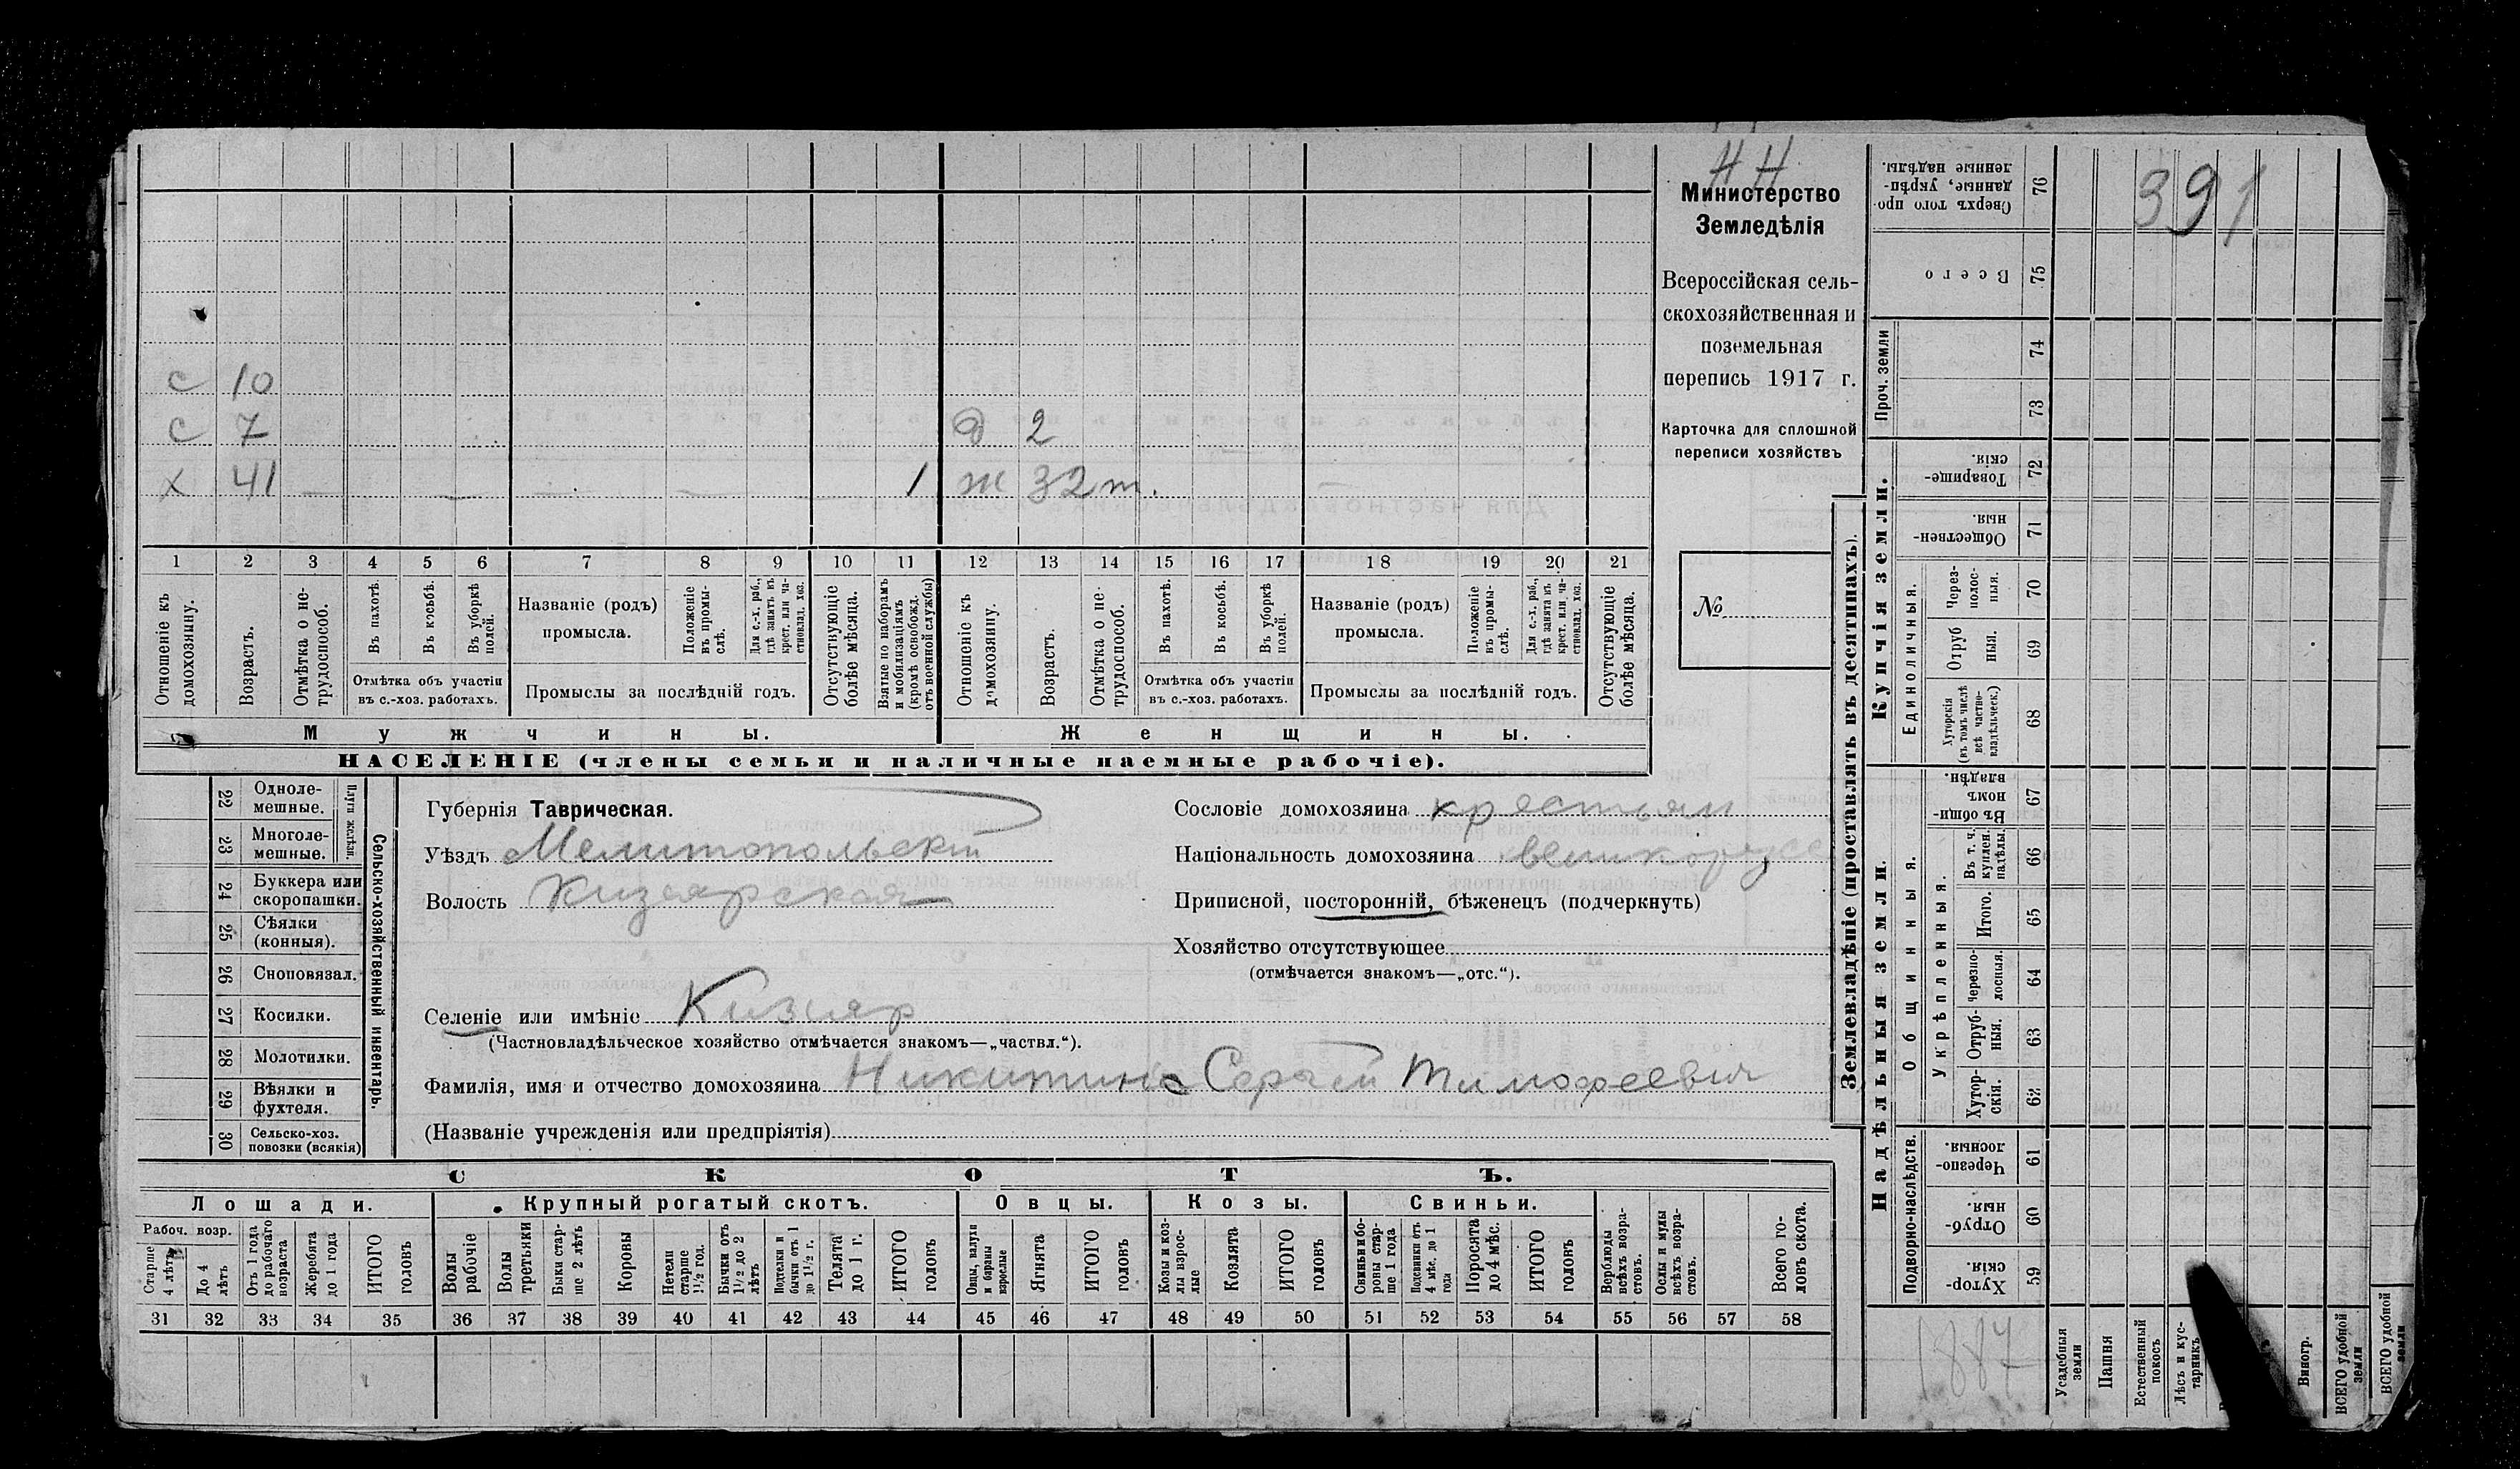 Н Н
Министерство
Земледѣлія
Всероссійская сель-
скохозяйственная и
поземельная
перепись 1917 г.
Карточка для сплошной
переписи хозяйствъ
№
391
с 10
с 7 д 2
х 41 1 ж 32 т.
1 2 3 4 5 6 7 8 9 10 11 12 13 14 15 16 17 18 19 20 21
Отношеніе къ домохозяину.
Возрастъ.
Отмѣтка о не-трудоспособ.
Въ пахотѣ.
Въ косьбѣ.
Въ уборкѣ полей.
Отмѣтка объ участіи
въ с.-хоз. работахъ.
Названіе (родъ)
промысла.
Положеніе въ промы-слѣ.
Для с.-х. раб., гдѣ занятъ въ крест. или ча-стновлад. хоз.
Промыслы за послѣдній годъ.
Отсутствующіе болѣе мѣсяца.
Взятые по наборамъ и мобилизаціямъ (кромѣ освобожд. отъ военной службы)
Отношеніе къ домохозяину.
Возрастъ.
Отмѣтка о не-трудоспособ.
Въ пахотѣ.
Въ косьбѣ.
Въ уборкѣ полей.
Отмѣтка объ участіи
въ с.-хоз. работахъ.
Названіе (родъ)
промысла.
Положеніе въ промы-слѣ.
Для с.-х. раб., гдѣ занята въ крест. или ча-стновлад. хоз.
Промыслы за послѣдній годъ.
Отсутствующіе болѣе мѣсяца.
Мужчины. Женщины.
НАСЕЛЕНІЕ (члены семьи и наличные наемные рабочіе).
22 Одноле-мешные.
23 Многоле-мешные.
Плуги желѣзн.
24 Буккера или скоропашки.
25 Сѣялки (конныя).
26 Сноповязал.
27 Косилки.
28 Молотилки.
29 Вѣялки и фухтеля.
30 Сельско-хоз. повозки (всякія)
Сельско-хозяйственный инвентарь.
Губернія Таврическая.
Уѣздъ Мелитопольскій
Волость Кизіярская
Сословіе домохозяина крестьян
Національность домохозяина великорусс
Приписной, посторонній, бѣженецъ (подчеркнуть)
Хозяйство отсутствующее
(отмѣчается знакомъ—„отс.“).
Селеніе или имѣніе Кизіяр
(Частновладѣльческое хозяйство отмѣчается знакомъ—„частвл.“).
Фамилія, имя и отчество домохозяина Никитинъ Сергѣй Тимофеевич
(Названіе учрежденія или предпріятія)
СКОТЪ.
Лошади. Крупный рогатый скотъ. Овцы. Козы. Свиньи.
Рабоч. возр.
Старше 4 лѣтъ
До 4 лѣтъ
Отъ 1 года до рабочаго возраста
Жеребята до 1 года
ИТОГО головъ
Волы рабочіе
Волы третьяки
Быки стар-ше 2 лѣтъ
Коровы
Нетели старше 1½ год.
Бычки отъ 1½ до 2 лѣтъ
Подтелки и бычки отъ 1 до 1½ г.
Телята до 1 г.
ИТОГО головъ
Овцы, валухи и бараны взрослые
Ягнята
ИТОГО головъ
Козы и коз-лы взрос-лые
Козлята
ИТОГО головъ
Свиньи и бо-ровы стар-ше 1 года
Подсвинки отъ 4 мѣс. до 1 года
Поросята до 4 мѣс.
ИТОГО головъ
Верблюды всѣхъ возра-стовъ.
Ослы и мулы всѣхъ возра-стовъ.
Всего го-ловъ скота.
31 32 33 34 35 36 37 38 39 40 41 42 43 44 45 46 47 48 49 50 51 52 53 54 55 56 57 58
Землевладѣніе (проставлять въ десятинахъ).
Купчія земли.
Надѣльныя земли.
76 Сверхъ того про-данные, укрѣп-ленные надѣлы.
75 Всего
74
73
Проч. земли
72 Товарище-скія.
71 Обществен-ныя.
Единоличныя.
70 Через-полос-ныя.
69 Отруб-ныя.
68 Хуторскія (въ томъ числѣ всѣ частно-владѣльческ.)
67 Въ общи-номъ владѣн.
Общинныя.
Укрѣпленныя.
66 Въ т. ч. куплен. надѣлы.
65 Итого.
64 Черезпо-лосныя.
63 Отруб-ныя.
62 Хутор-скія.
Подворно-наслѣдств.
61 Черезпо-лосныя.
60 Отруб-ныя.
59 Хутор-скія.
1887
Усадебныя земли
Пашня
Естественный покосъ
Лѣсъ и кус-тарникъ
Виногр.
ВСЕГО удобной земли
ВСЕГО удобной земли